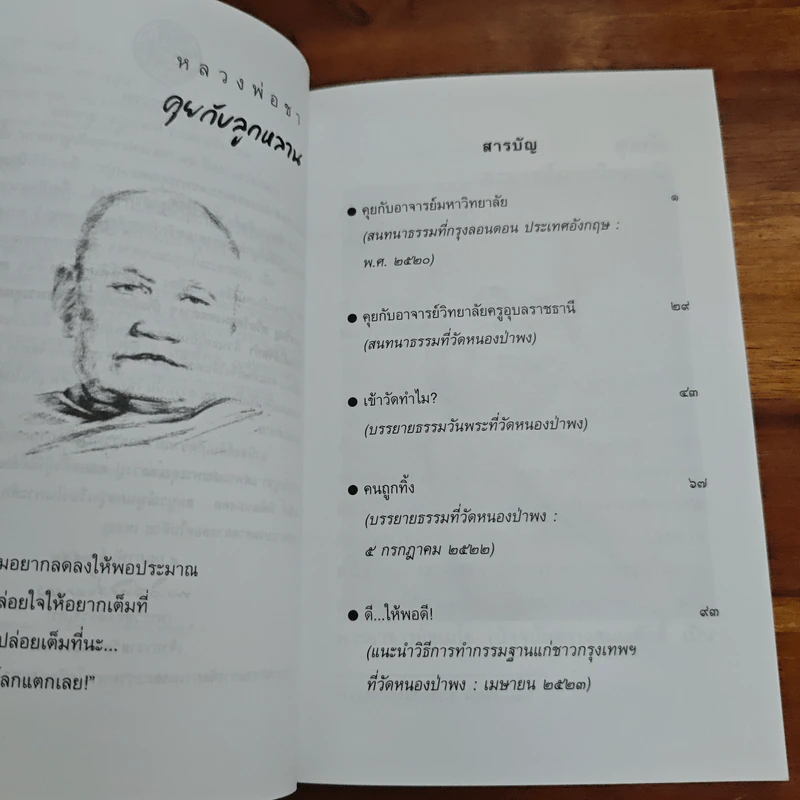 หลวงพ่อชา
คุยกับลูกหลาน
มอยากลดลงให้พอประมาณ
ล่อยใจให้อยากเต็มที่
ปล่อยเต็มที่นะ...
โลกแตกเลย!”
สารบัญ
● คุยกับอาจารย์มหาวิทยาลัย ๑
(สนทนาธรรมที่กรุงลอนดอน ประเทศอังกฤษ :
พ.ศ. ๒๕๒๐)
● คุยกับอาจารย์วิทยาลัยครูอุบลราชธานี ๒๙
(สนทนาธรรมที่วัดหนองป่าพง)
● เข้าวัดทำไม? ๔๓
(บรรยายธรรมวันพระที่วัดหนองป่าพง)
● คนถูกทิ้ง ๖๗
(บรรยายธรรมที่วัดหนองป่าพง :
๕ กรกฎาคม ๒๕๒๒)
● ดี...ให้พอดี! ๙๓
(แนะนำวิธีการทำกรรมฐานแก่ชาวกรุงเทพฯ
ที่วัดหนองป่าพง : เมษายน ๒๕๒๓)